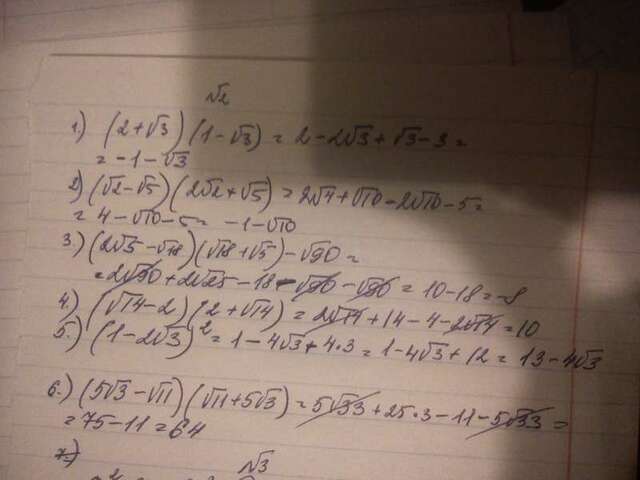 √2
1.) (2+√3)(1-√3) = 2-2√3+√3-3 =
= -1-√3
2) (√2-√5)(2√2+√5) = 2√4+√10-2√10-5 =
= 4-√10-5 = -1-√10
3.) (2√5-√18)(√18+√5)-√90 =
= 2√90+2√25-18-√90-√90 = 10-18 = -8
4.) (√14-2)(2+√14) = 2√14+14-4-2√14 = 10
5.) (1-2√3)² = 1-4√3+4·3 = 1-4√3+12 = 13-4√3
6.) (5√3-√11)(√11+5√3) = 5√33+25·3-11-5√33 =
= 75-11 = 64
7.)
√3